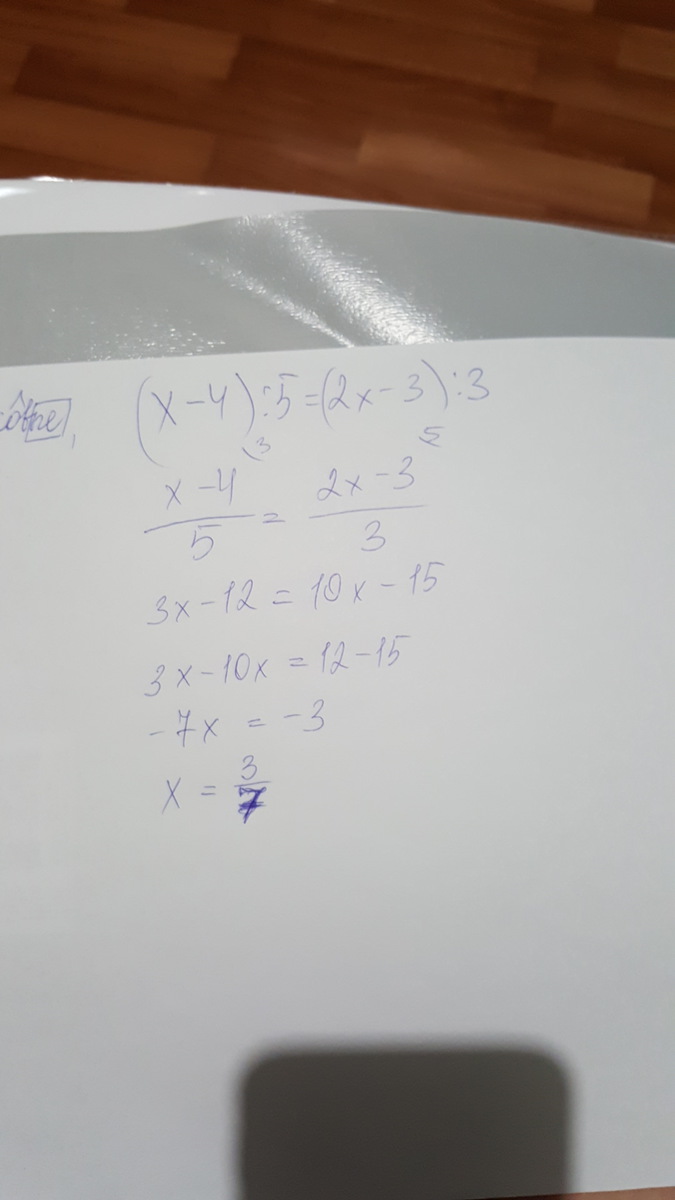 (x-4):5=(2x-3):3
3 5
x-4/5 = 2x-3/3
3x-12 = 10x-15
3x-10x = 12-15
-7x = -3
x = 3/7